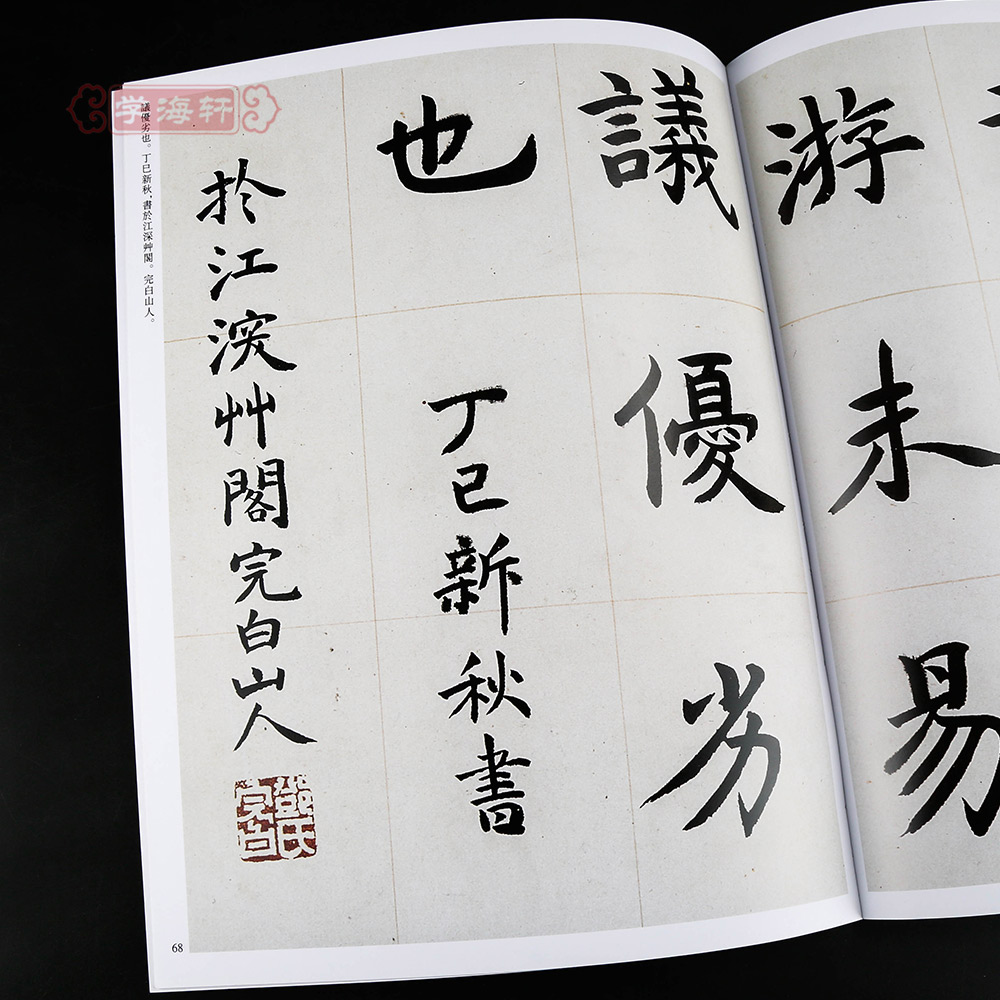 学海轩
游未易
議優劣
也丁巳新秋書
於江深艸閣完白山人
鄧氏完白
議優劣也。丁巳新秋，書於江深艸閣。完白山人。
68